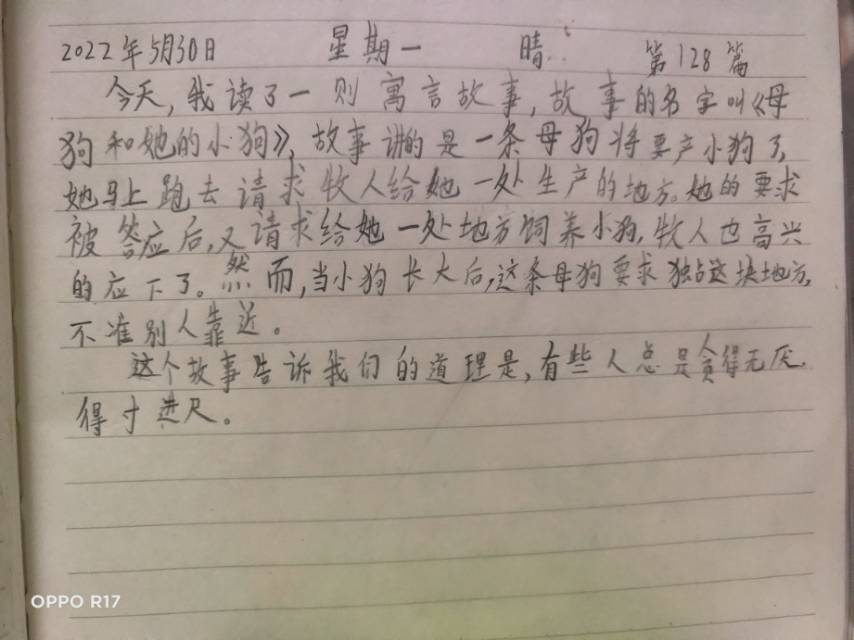 2022年5月30日 星期一 晴 第128篇
今天,我读了一则寓言故事,故事的名字叫《母
狗和她的小狗》,故事讲的是一条母狗将要产小狗了,
她马上跑去请求牧人给她一处生产的地方。她的要求
被答应后,又请求给她一处地方饲养小狗,牧人也高兴
的应下了。然而,当小狗长大后,这条母狗要求独占这块地方,
不准别人靠近。
这个故事告诉我们的道理是,有些人总是贪得无厌,
得寸进尺。
OPPO R17